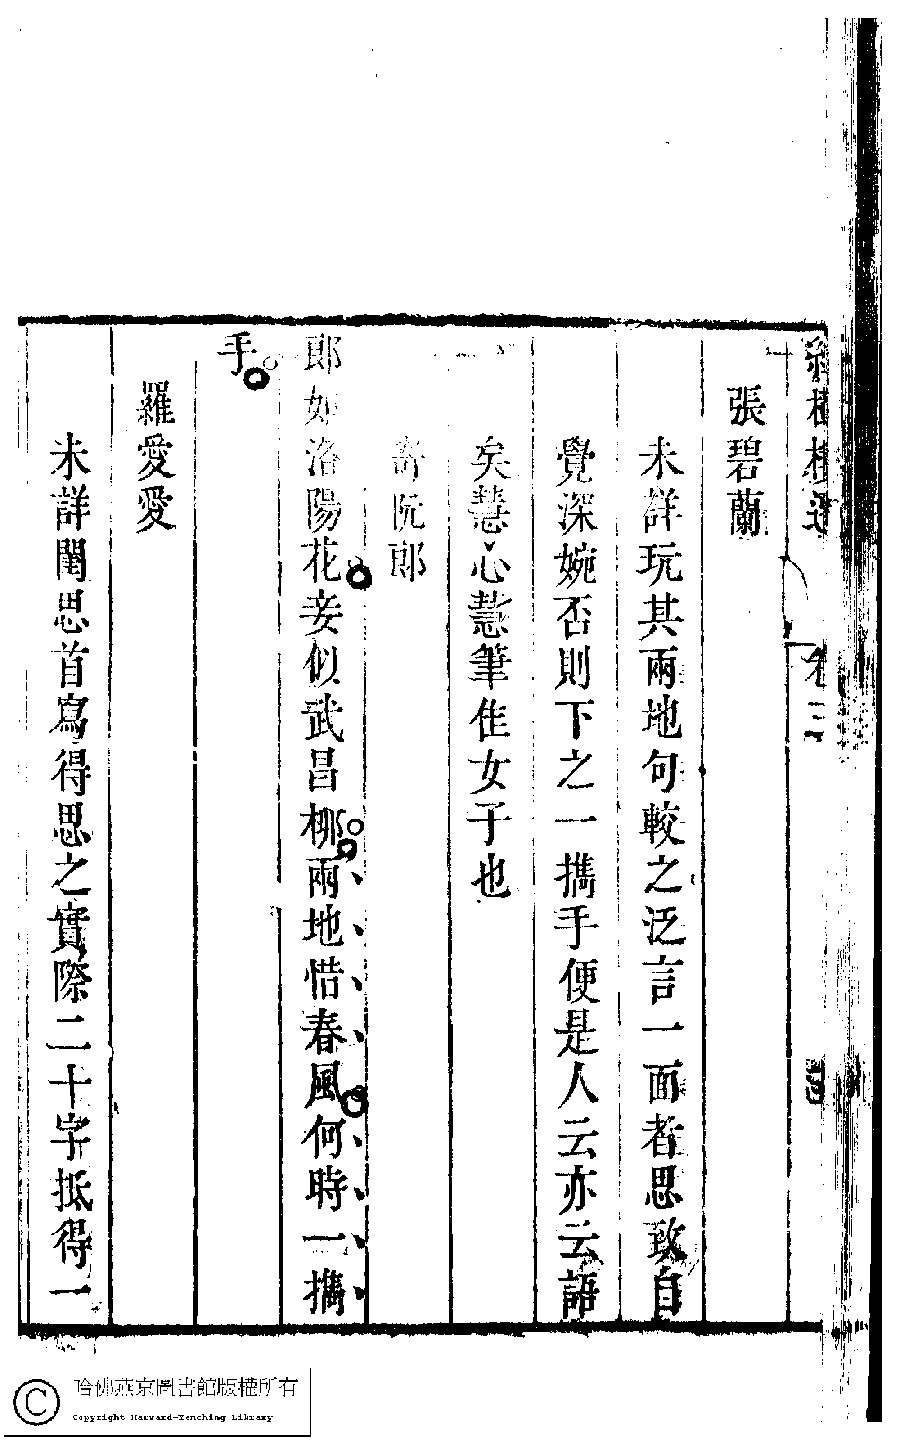 張碧蘭
未詳玩其兩地句較之泛言一面者思致自
覺深婉否則下之一攜手便是人云亦云語
矣慧心慧筆佳女子也
寄阮郎
郎如洛陽花妾似武昌柳兩地惜春風何時一攜
手
羅愛愛
未詳閨思首寫得思之實際二十字抵得一
哈佛燕京圖書館版權所有
Copyright Harvard-Yenching Library